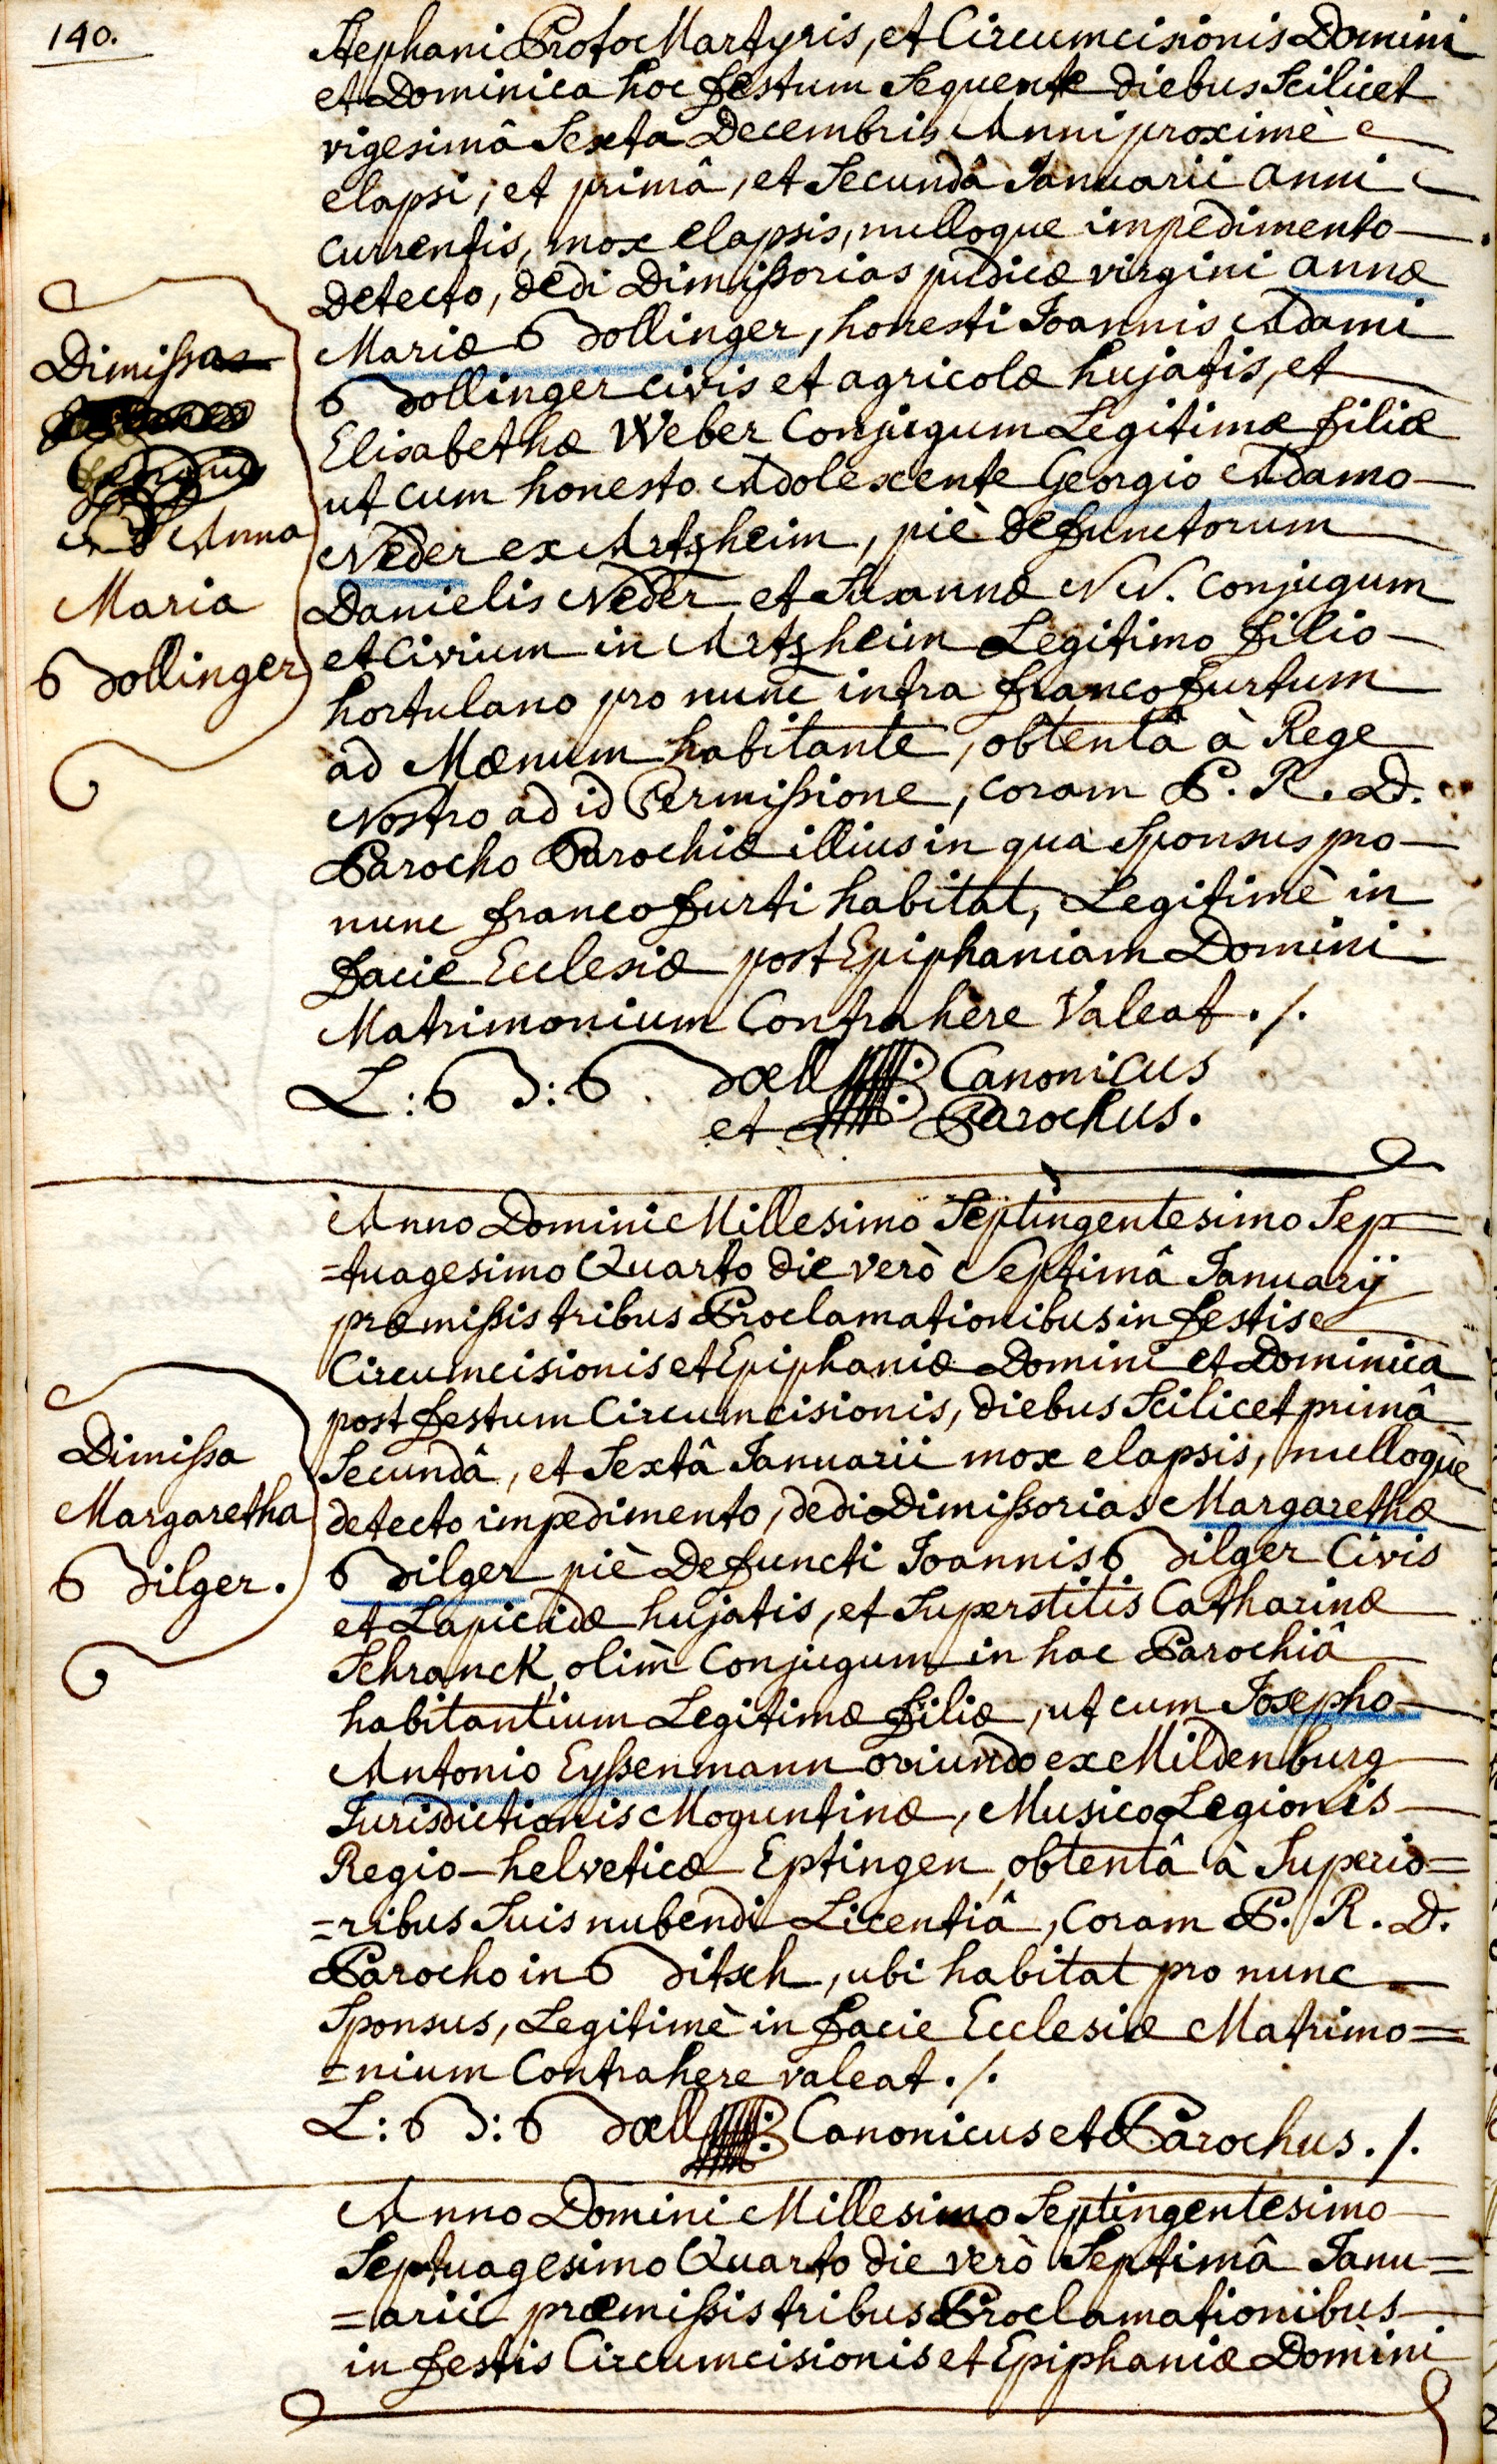 140.
Stephani ProtoMartyris, et Circumcisionis Domini
et Dominica hoc festum Sequente diebus Scilicet
vigesimâ Sexta Decembris Anni proximè
elapsi, et primâ, et Secundâ Januarii anni
currentis, mox elapsis, nulloque impedimento
Detecto, dedi Dimißorias pudicæ virgini annæ
Mariæ Bollinger, honesti Joannis Adami
Bollinger civis et agricolæ hujatis, et
Elisabethæ Weber Conjugum Legitimæ filiæ
ut cum honesto Adolescente Georgio Adamo
Neder ex Artzheim, piè defunctorum
Danielis Neder et Susannæ N N. conjugum
et Civium in Artzheim Legitimo filio
hortulano pro nunc intra francofurtum
ad Mœnum habitante, obtentâ à Rege
Nostro ad id Permißione, coram P. R. D.
Parocho Parochiæ illius in qua Sponsus pro
nunc francofurti habitat, Legitimè in
facie Ecclesiæ post Epiphaniam Domini
Matrimonium Contrahere Valeat ./.
L: B: Bœll Canonicus
et Parochus.
Dimißa
Anna
Maria
Bollinger
Anno Domini Millesimo Septingentesimo Sep=
=tuagesimo Quarto die verò Septimâ Januarij
præmißis tribus Proclamationibus in festis
Circumcisionis et Epiphaniæ Domini et Dominica
post festum Circumcisionis, diebus Scilicet primâ
Secundâ, et Sextâ Januarii mox elapsis, nulloque
detecto impedimento, dedi Dimißorias Margarethæ
Bilger piè Defuncti Joannis Bilger Civis
et Lapicidæ hujatis, et Superstitis Catharinæ
Schranck, olim Conjugum in hac Parochiâ
habitantium Legitimæ filiæ, ut cum Josepho
Antonio Eyßenmann oriundo ex Mildenburg
Jurisdictionis Moguntinæ, Musico Legionis
Regio-helveticæ Eptingen, obtentâ à Superio=
=ribus Suis nubendi Licentiâ, coram P. R. D.
Parocho in Bitsch, ubi habitat pro nunc
Sponsus, Legitimè in facie Ecclesiæ Matrimo=
=nium Contrahere valeat ./.
L: B: Bœll Canonicus et Parochus ./.
Dimißa
Margaretha
Bilger.
Anno Domini Millesimo Septingentesimo
Septuagesimo Quarto die verò Septimâ Janu=
=arii præmißis tribus Proclamationibus
in festis Circumcisionis et Epiphaniæ Domini